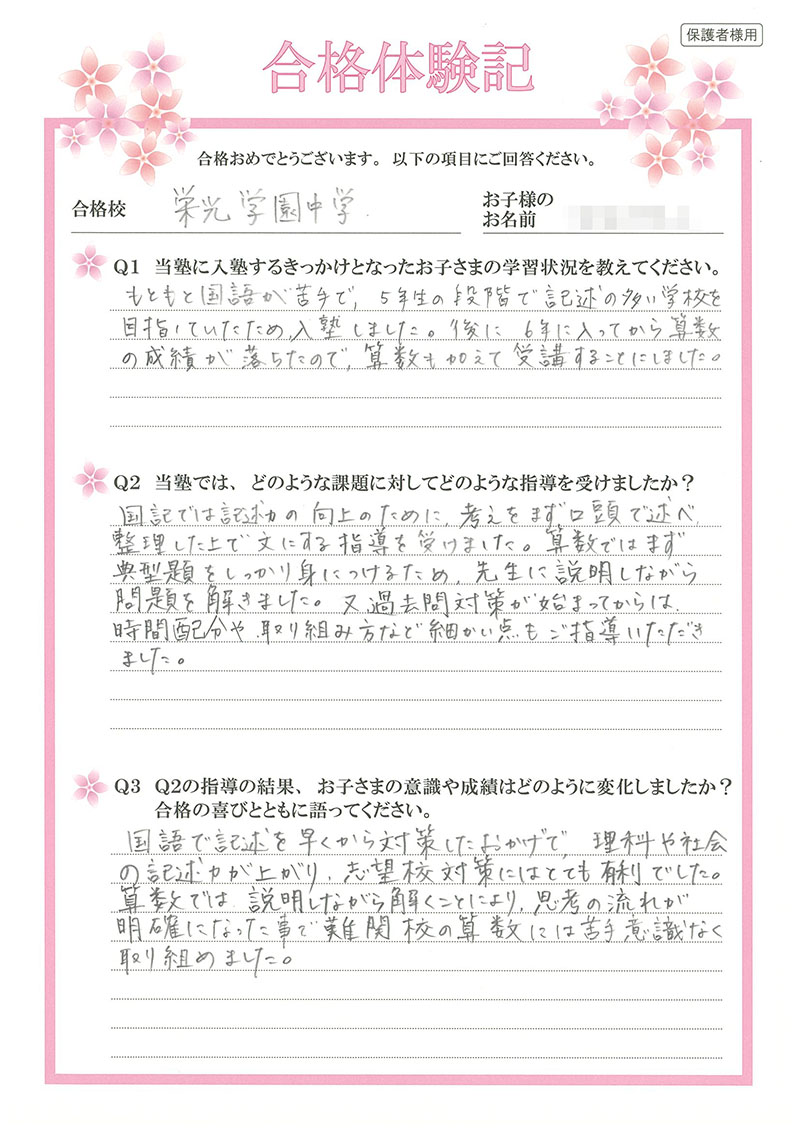 保護者様用
合格体験記
合格おめでとうございます。以下の項目にご回答ください。
合格校 栄光学園中学
お子様の
お名前
Q1 当塾に入塾するきっかけとなったお子さまの学習状況を教えてください。
もともと国語が苦手で、5年生の段階で記述の多い学校を
目指していたため、入塾しました。後に 6年に入ってから算数
の成績が落ちたので、算数も加えて受講することにしました。
Q2 当塾では、どのような課題に対してどのような指導を受けましたか？
国記では記述力の向上のために、考えをまず口頭で述べ、
整理した上で文にする指導を受けました。算数ではまず
典型題をしっかり身につけるため、先生に説明しながら
問題を解きました。又、過去問対策が始まってからは、
時間配分や、取り組み方など細かい点もご指導いただき
ました。
Q3 Q2の指導の結果、お子さまの意識や成績はどのように変化しましたか？
合格の喜びとともに語ってください。
国語で記述を早くから対策したおかげで、理科や社会
の記述力が上がり、志望校対策にはとても有利でした。
算数では、説明しながら解くことにより、思考の流れが
明確になった事で難関校の算数には苦手意識なく
取り組めました。